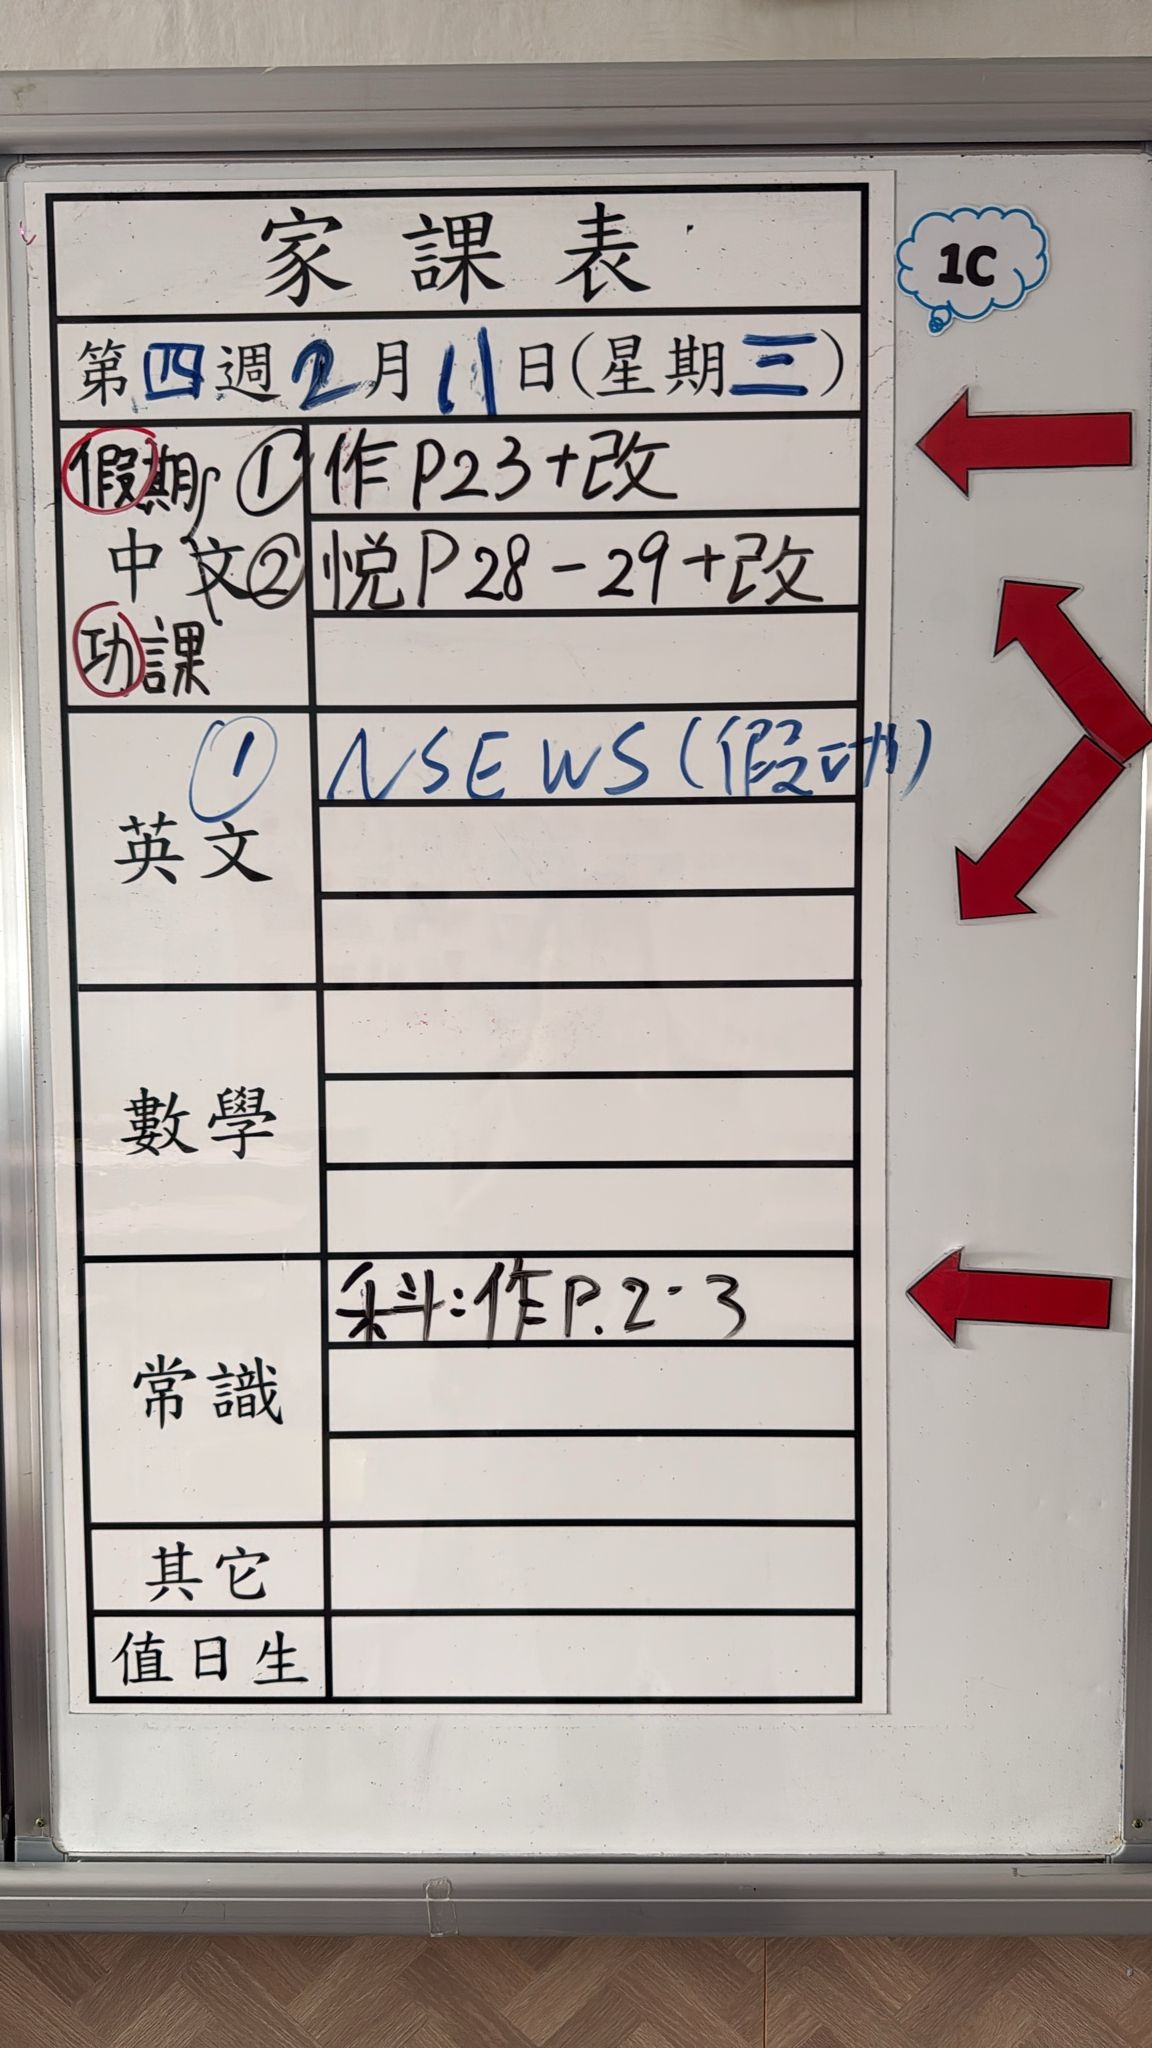 家課表
1C
第四週2月11日(星期三)
假期 ① 作P23+改
中文 ② 悦P28-29+改
功課
① NSEWS(假功)
英文
數學
科:作P.2-3
常識
其它
值日生